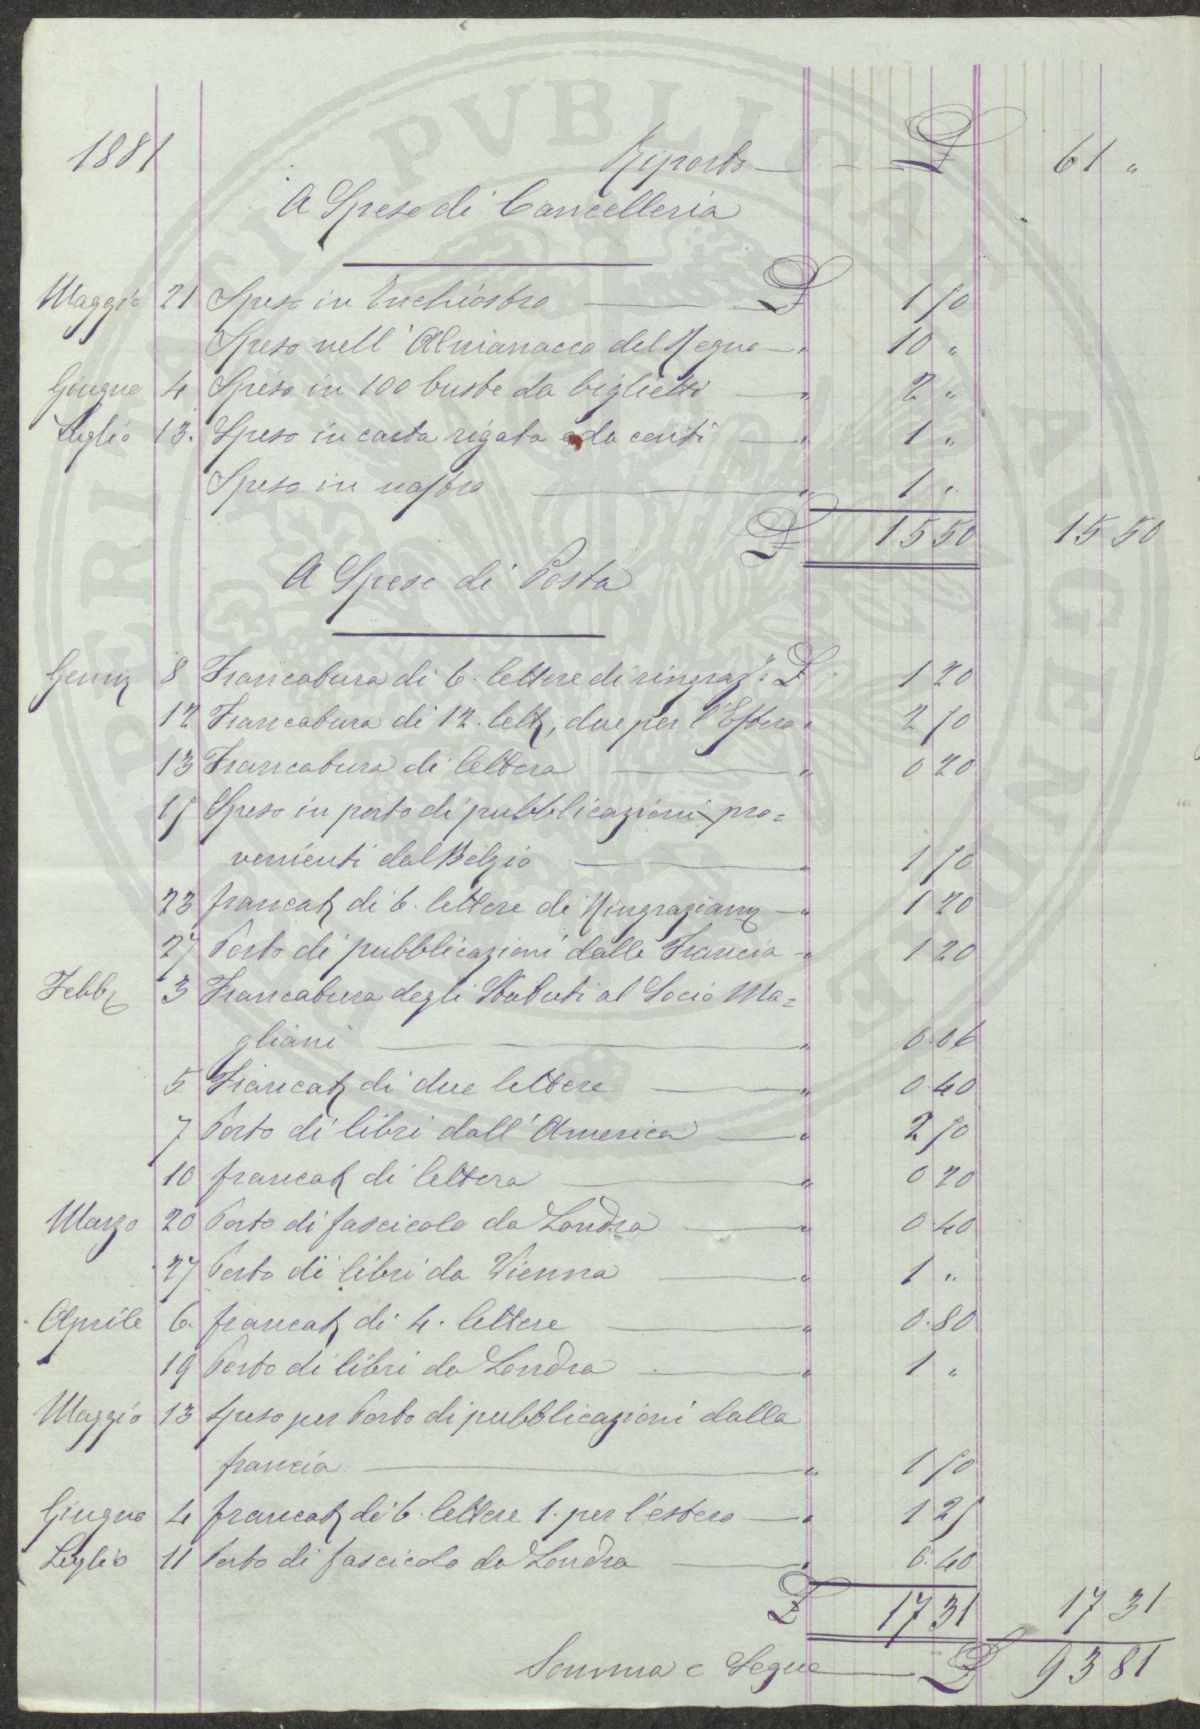 1881 Riporto £ 61 "
A Spese di Cancelleria
Maggio 21 Speso in Inchiostro £ 1 50
Speso nell'Almanacco del Regno " 10 "
Giugno 4 Speso in 100 buste da biglietti " 2 "
Luglio 13. Speso in carta rigata da conti " 1 "
Speso in nastro " 1 "
£ 15 50 15 50
A Spese di Posta
8 Francatura di 6. lettere di £ 1 20
12 Francatura di 12. lett, due per l'Estero " 2 50
13 Francatura di lettera " 0 20
15 Speso in porto di pubblicazioni pro=
venienti dal Belgio " 1 50
23 di 6. lettere di " 1 20
27 Porto di pubblicazioni dalla Francia " 1 20
3 Francatura degli Statuti al Socio Ma=
gliani " 0.06
5 di due lettere " 0.40
7 Porto di libri dall'America " 2 50
10 di lettera " 0 20
Marzo 20 Porto di fascicolo da Londra " 0.40
27 Porto di libri da Vienna " 1 "
Aprile 6. di 4. lettere " 0.80
19 Porto di libri da Londra " 1 "
Maggio 13 Speso per Porto di pubblicazioni dalla
francia " 1 50
Giugno 4 di 6. lettere 1. per l'estero " 1 25
Luglio 11 Porto di fascicolo da Londra " 0.40
£ 17 31 17 31
Somma e Segue £ 93 81
PERITATI PVBLICAE AVGENDAE